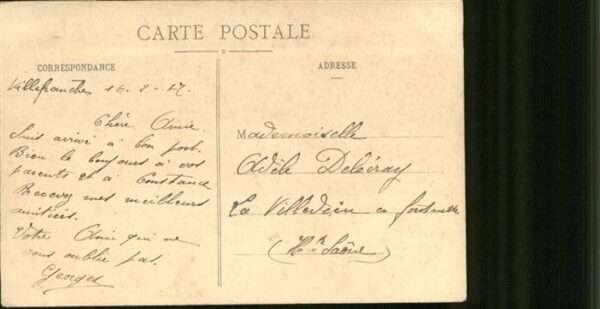 CARTE POSTALE
CORRESPONDANCE
ADRESSE
Villefranche 16-2-17.
Chère Amie.
Suis arrivé à bon port.
Bien le bonjour à vos
parents et à Constance
Recevez mes meilleurs
amitiés.
Votre Ami qui ne
vous oublie pas.
Georges
Mademoiselle
Adèle
La Villedieu en
(Hte Saône)